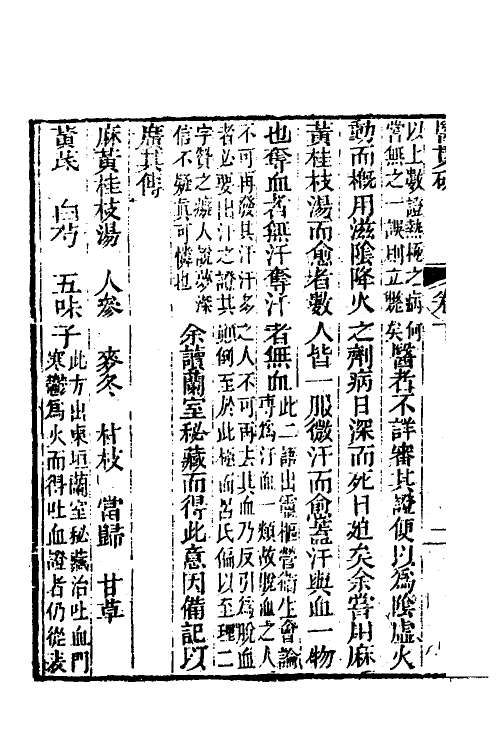 醫貫砭　卷下
以上數證熱極之病何
嘗無之一誤則立斃矣醫者不詳審其證便以為陰虛火
動而概用滋陰降火之劑病日深而死日迫矣余嘗用麻
黃桂枝湯而愈者數人皆一服微汗而愈蓋汗與血一物
也奪血者無汗奪汗者無血此二語出靈樞營衛生會論
專為汗血一類故脫血之人
不可再發其汗汗多之人不可再去其血乃反引為脫血
者必要出汗之證其顛倒至於此極而呂氏偏以至理二
字贊之癡人說夢深
信不疑真可憐也余讀蘭室秘藏而得此意因備記以
廣其傳
麻黃桂枝湯　人參　麥冬　桂枝　當歸　甘草
黃芪　白芍　五味子此方出東垣蘭室秘藏治吐血門
寒鬱為火而得吐血證者仍從表